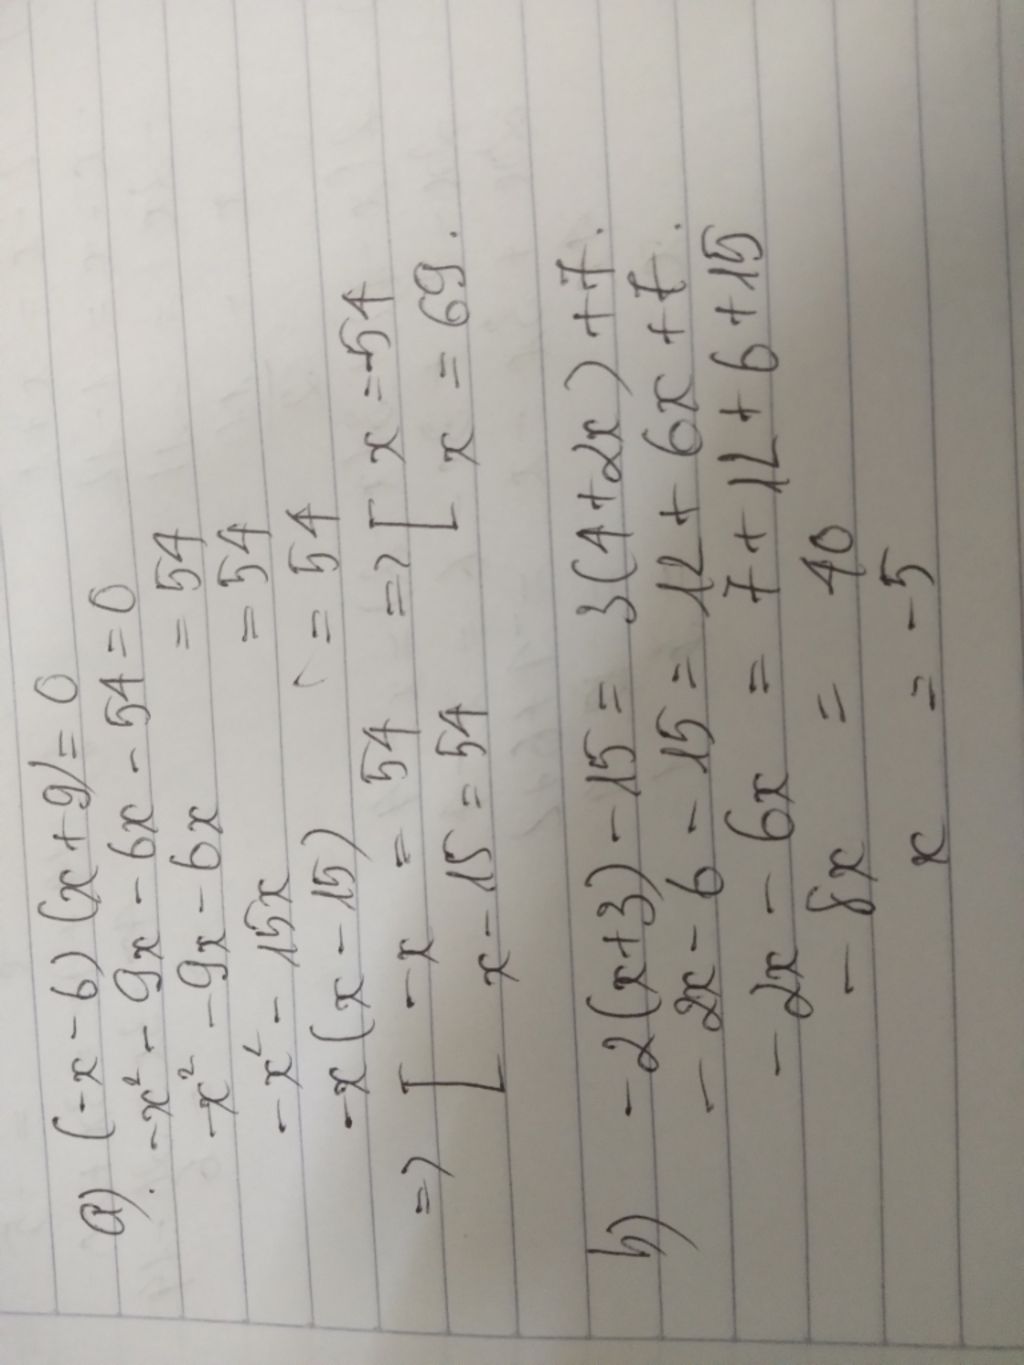 a) (-x-6)(x+9)=0
-x²-9x-6x-54=0
-x²-9x-6x = 54
-x²-15x = 54
-x(x-15) = 54
=> [ -x = 54 => [ x=-54
[ x-15=54 [ x=69.
b) -2(x+3)-15= 3(4+2x)+7.
-2x-6-15=12+6x+7.
-2x-6x = 7+12+6+15
-8x = 40
x = -5